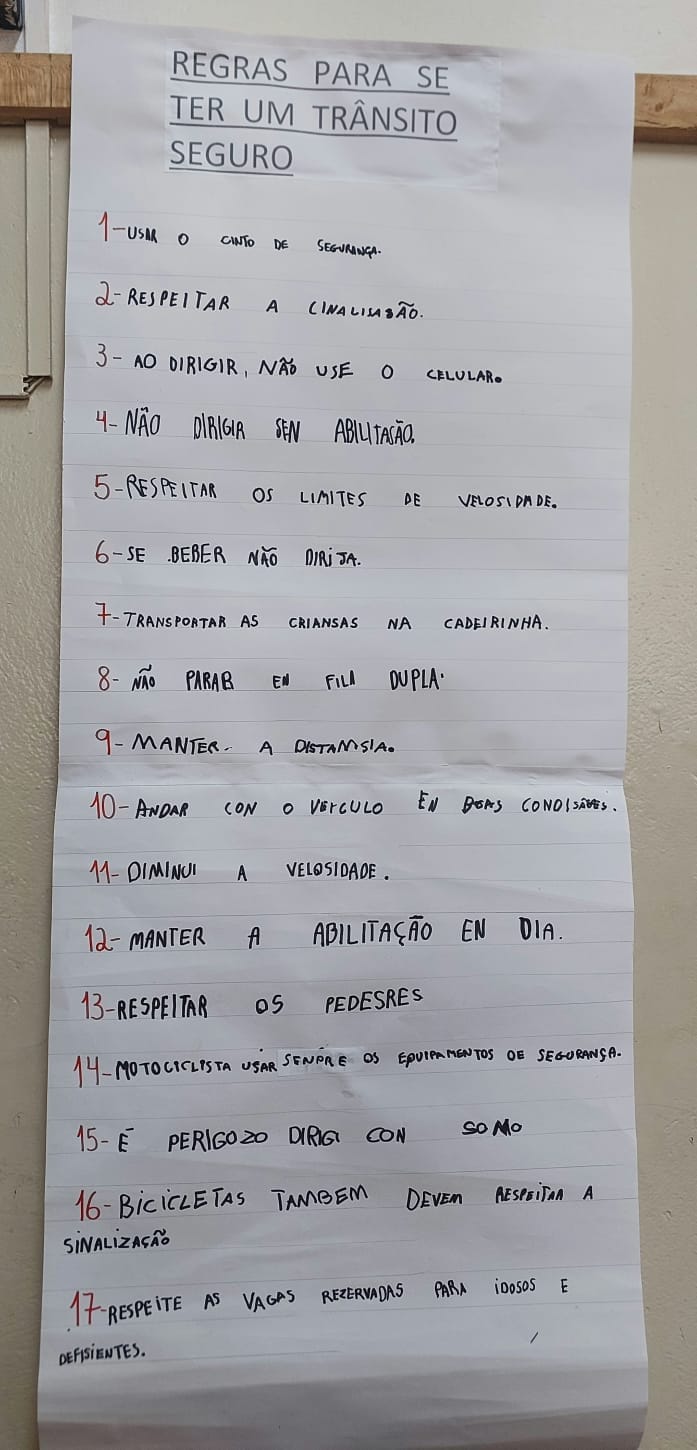 REGRAS PARA SE
TER UM TRÂNSITO
SEGURO
1-USAR O CINTO DE SEGURANÇA.
2-RESPEITAR A CINALISASÃO.
3-AO DIRIGIR, NÃO USE O CELULAR.
4-NÃO DIRIGIR SEN ABILITAÇÃO.
5-RESPEITAR OS LIMITES DE VELOSIDADE.
6-SE BEBER NÃO DIRIJA.
7-TRANSPORTAR AS CRIANSAS NA CADEIRINHA.
8-NÃO PARAR EN FILA DUPLA.
9-MANTER A DISTAMSIA.
10-ANDAR CON O VEÍCULO EN BOAS
11-DIMINUI A VELOSIDADE.
12-MANTER A ABILITAÇÃO EN DIA.
13-RESPEITAR OS PEDESRES
14-MOTOCICLISTA USAR SENPRE OS EQUIPAMENTOS DE SEGURANÇA.
15-É PERIGOZO DIRIGI CON SOMO
16-BICICLETAS TAMBEM DEVEM RESPEITAR A
SINALIZAÇÃO
17-RESPEITE AS VAGAS REZERVADAS PARA IDOSOS E
DEFISIENTES.